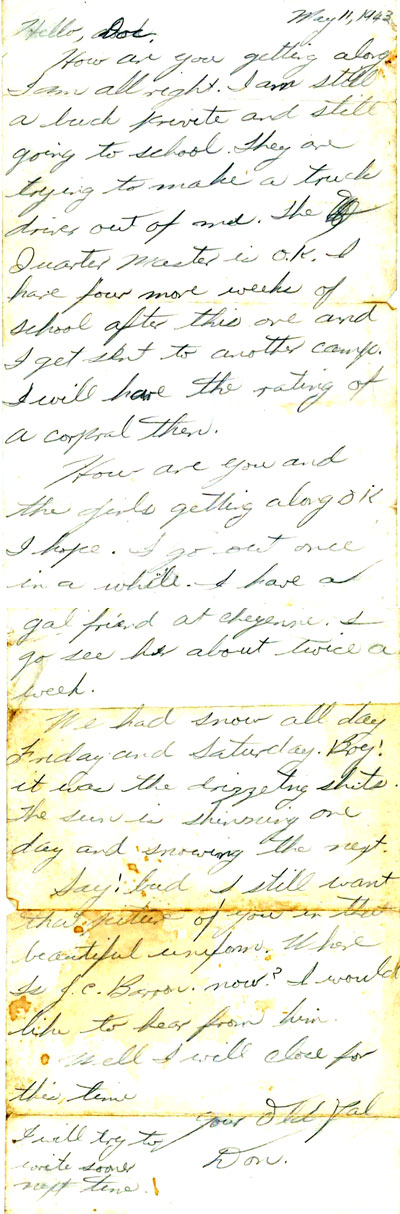 May 11, 1943
Hello, Doc,
How are you getting along
I am all right. I am still
a buck privite and still
going to school. They are
trying to make a truck
driver out of me. The
Quarter Master is O.K. I
have four more weeks of
school after this one and
I get sent to another camp.
I will have the rating of
a corpral then.
How are you and
the girls getting along OK
I hope. I go out once
in a while. I have a
gal friend at Cheyenne. I
go see her about twice a
week.
We had snow all day
Friday and Saturday. Boy!
it was the drizzeling shits.
The sun is shinning one
day and snowing the next.
Say! bud I still want
that picture of you in the
beautiful uniform. Where
Is J.C. Barron. now? I would
like to hear from him.
Well I will close for
this time
your Old Pal
Don.
I will try to
write sooner
next time.!